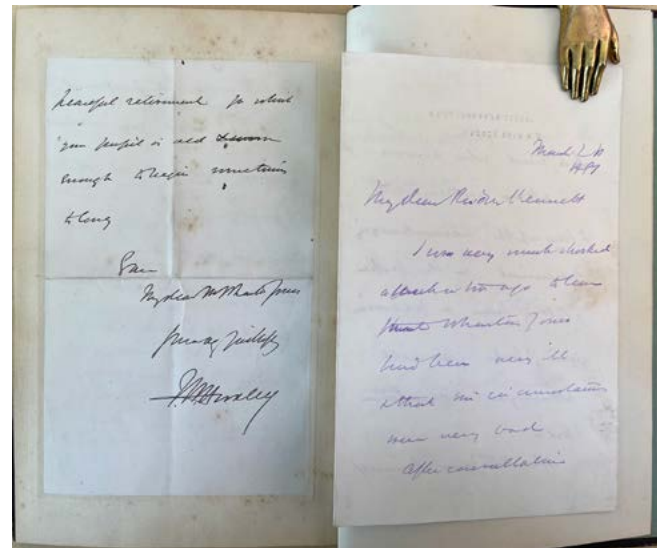 peaceful retirement for which
your pupil is old
enough to begin sometimes
to long
I am
My dear Mr Wharton Jones
yours very faithfully
T H Huxley
March
1889
My dear Risdon Bennett
I was very much shocked
a week or two ago to learn
that Wharton Jones
had been very ill
& that his circumstances
were very bad
After consultation